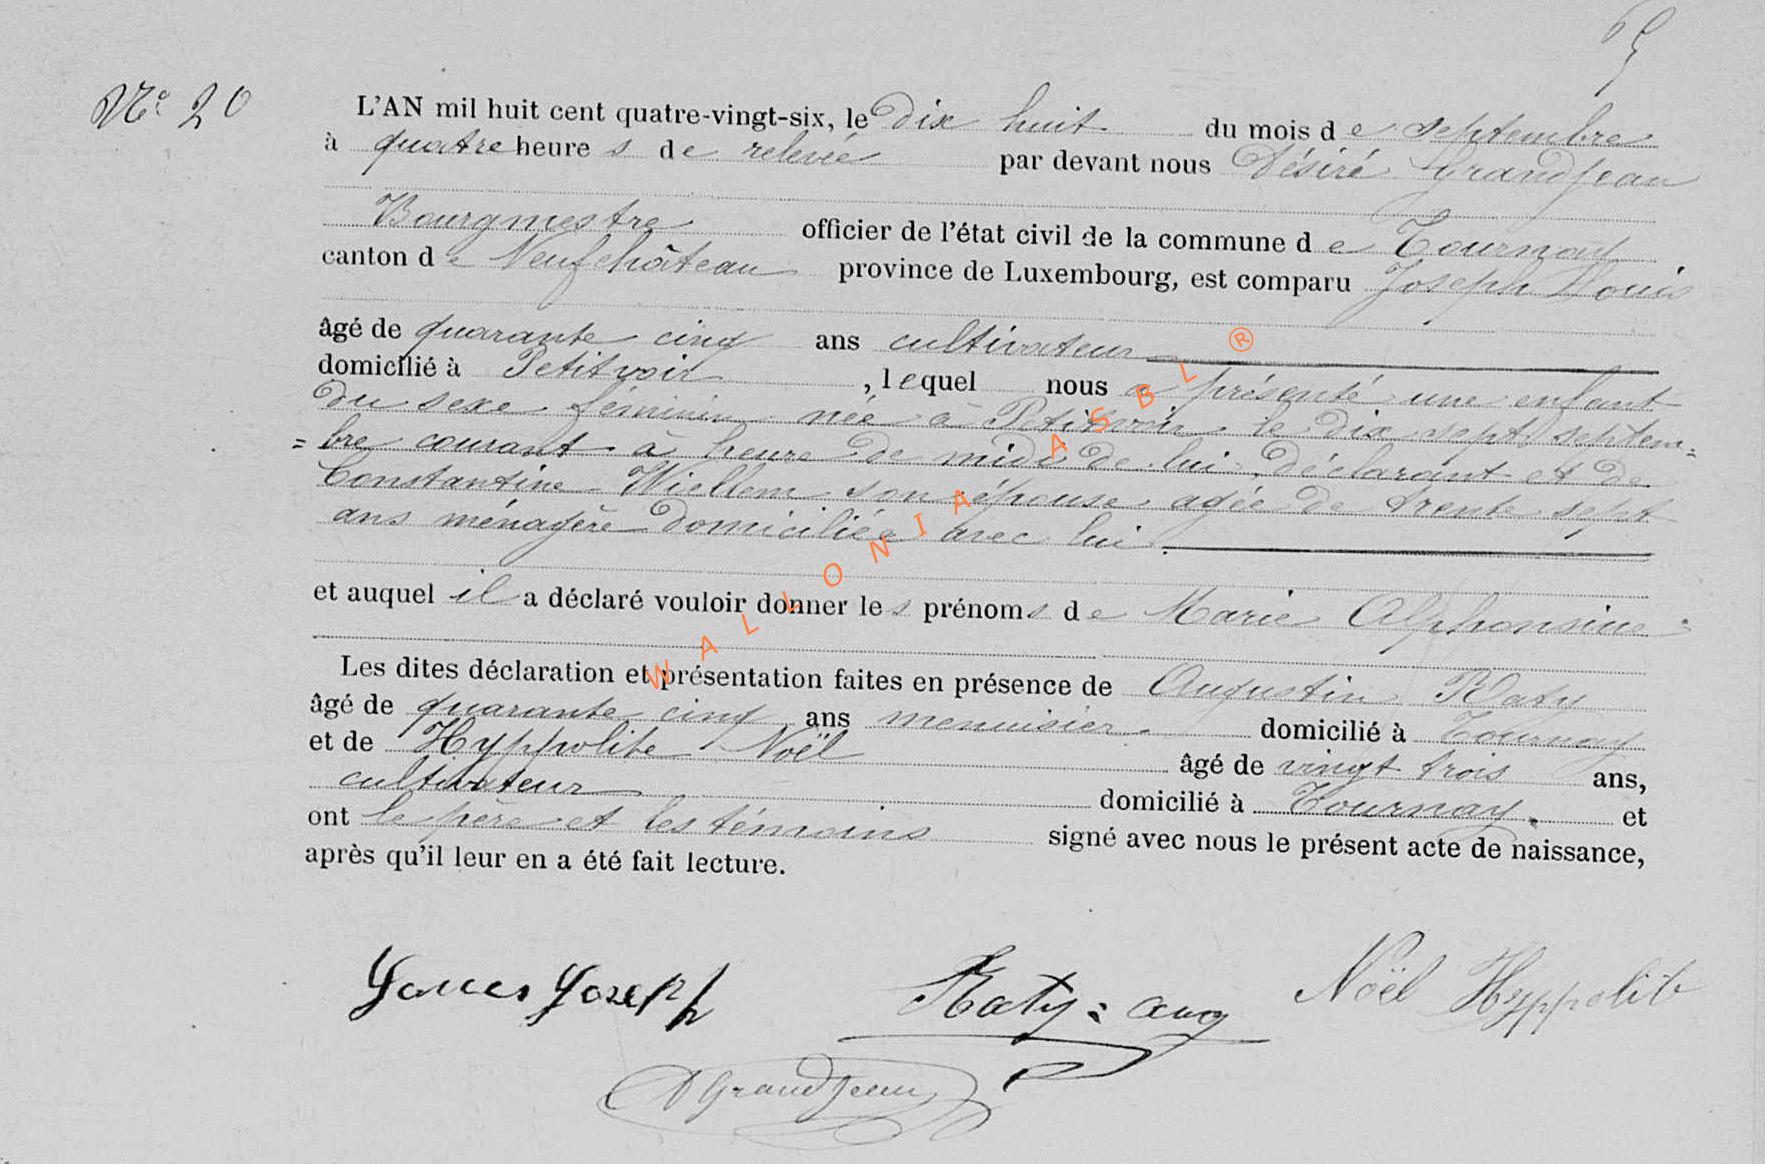 65
N° 20
L'AN mil huit cent quatre-vingt-six, le dix huit du mois de septembre
à quatre heures de relevée par devant nous Désiré Grandjean
Bourgmestre officier de l'état civil de la commune de Tournay
canton de Neufchâteau province de Luxembourg, est comparu Joseph Louis
âgé de quarante cinq ans cultivateur
domicilié à Petitvoir, lequel nous a présenté une enfant
du sexe féminin née à Petitvoir le dix sept septem=
=bre courant à heure de midi de lui déclarant et de
Constantine Wiellem son épouse agée de trente sept
ans ménagère domiciliée avec lui.
et auquel il a déclaré vouloir donner les prénoms de Marie Alphonsine
Les dites déclaration et présentation faites en présence de Augustin Raty
âgé de quarante cinq ans menuisier domicilié à Tournay
et de Hyppolite Noël âgé de vingt trois ans,
cultivateur domicilié à Tournay. et
ont le père et les témoins signé avec nous le présent acte de naissance,
après qu'il leur en a été fait lecture.
Joseph Raty = aug Noël Hyppolite
D Grandjean
WALLONIA ASBL ®